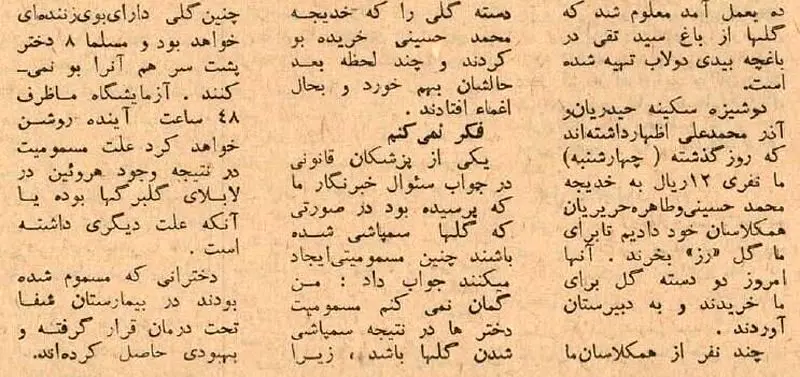 ده بعمل آمد معلوم شد که
گلها از باغ سید تقی در
باغچه بیدی دولاب تهیه شده
است.
دوشیزه سکینه حیدریان‌و
آذر محمدعلی اظهارداشته‌اند
که روز گذشته ( چهارشنبه)
ما نفری ۱۲ریال به خدیجه
محمد حسینی‌وطاهره‌حریریان
همکلاسان خود دادیم تابرای
ما گل «رز» بخرند . آنها
امروز دو دسته گل برای
ما خریدند و به دبیرستان
آوردند .
چند نفر از همکلاسان‌ما
دسته گلی را که خدیجه
محمد حسینی خریده بو
کردند و چند لحظه بعد
حالشان بهم خورد و بحال
اغماء افتادند .
فکر نمی‌کنم
یکی از پزشکان قانونی
در جواب سئوال خبرنگار ما
که پرسیده بود در صورتی
که گلها سمپاشی شده
باشند چنین مسمومیتی‌ایجاد
میکنند جواب داد : من
گمان نمی کنم مسمومیت
دختر ها در نتیجه سمپاشی
شدن گلها باشد ، زیرا
چنین‌گلی دارای‌بوی‌زننده‌ای
خواهد بود و مسلما ۸ دختر
پشت سر هم آنرا بو نمی‌ـ
کنند . آزمایشگاه ماظرف
۴۸ ساعت آینده روشن
خواهد کرد علت مسمومیت
در نتیجه وجود هروئین در
لابلای گلبرگها بوده یا
آنکه علت دیگری داشته
است .
دخترانی که مسموم شده
بودند در بیمارستان شفا
تحت درمان قرار گرفته و
بهبودی حاصل کرده‌اند.